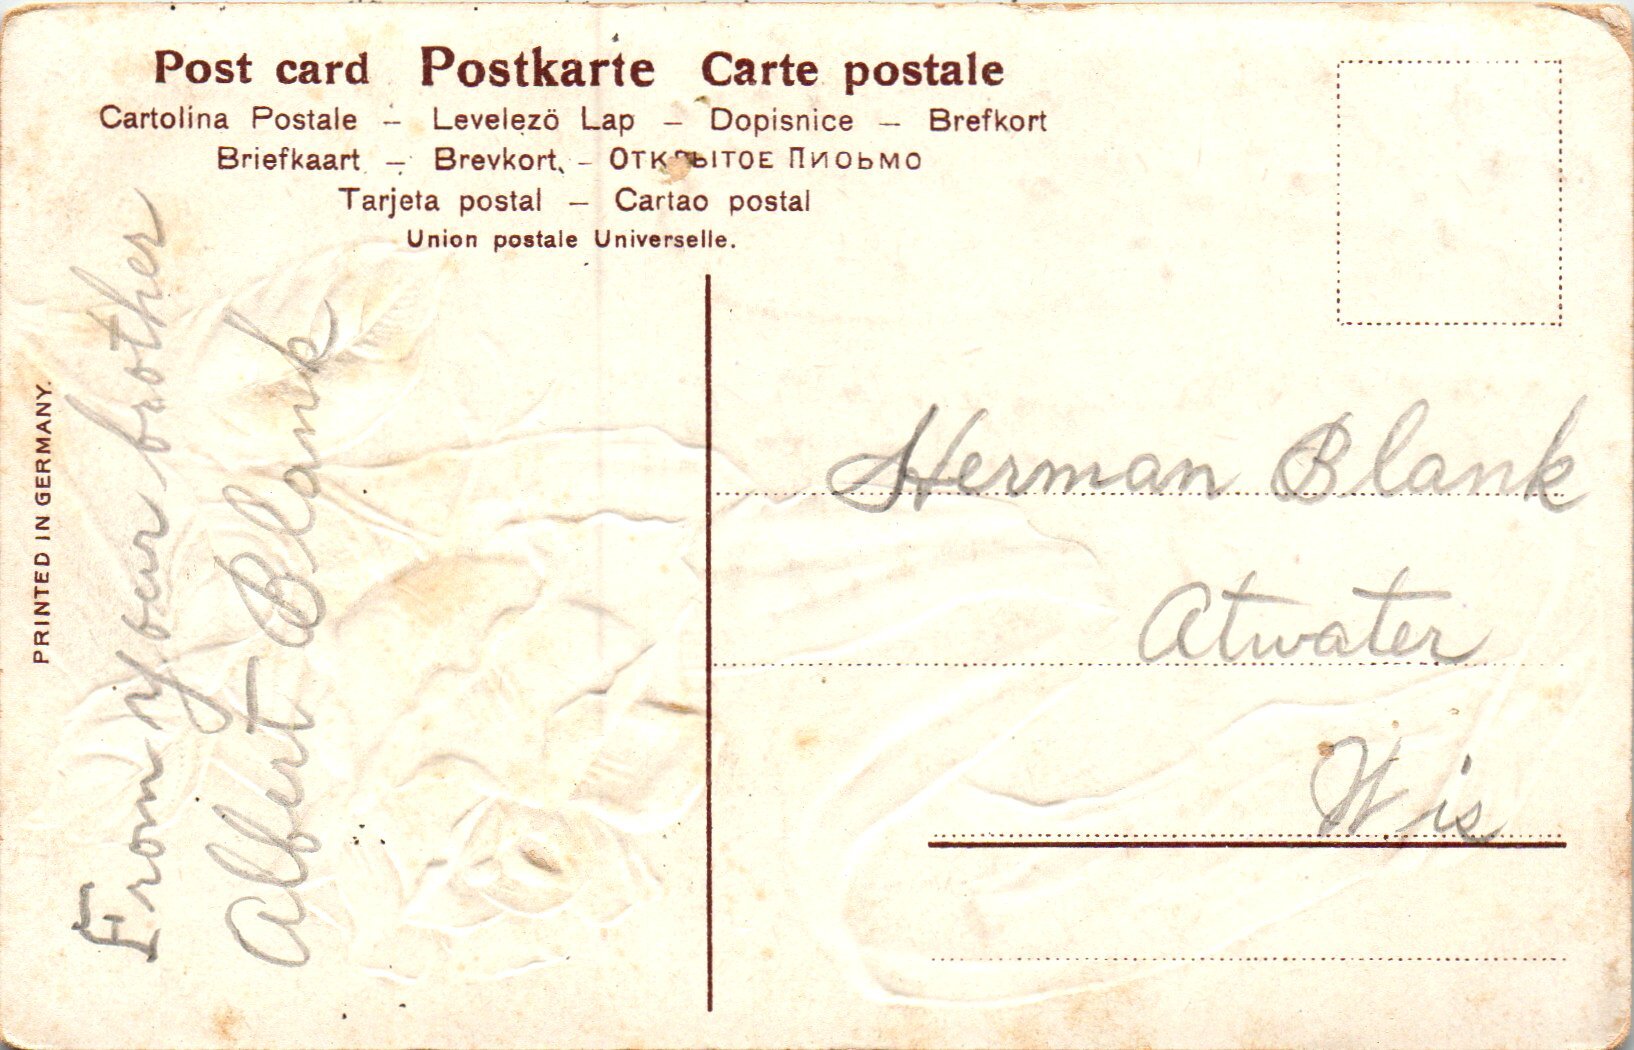 Post card Postkarte Carte postale
Cartolina Postale – Levelezö Lap – Dopisnice – Brefkort
Briefkaart – Brevkort, – Открытое Пиоьмо
Tarjeta postal – Cartao postal
Union postale Universelle.
PRINTED IN GERMANY.
From your brother
Albert Blank
Herman Blank
Atwater
Wis